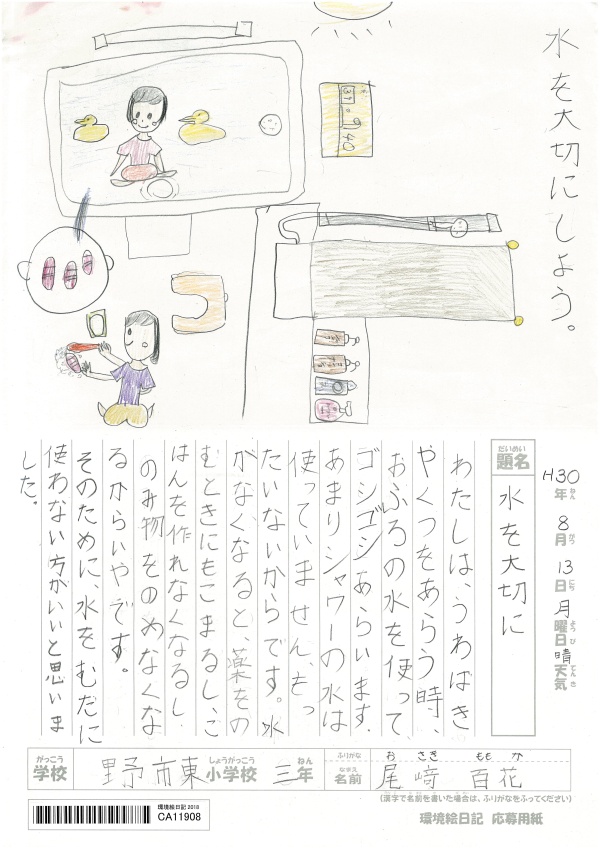 水を大切にしよう。
37.0
40
だいめい
題名
水を大切に
H30年 8月 13日 月曜日 晴 天気
ねん がつ にち ようび てんき
わたしは、うわばき
やくつをあらう時、
おふろの水を使って、
ゴシゴシあらいます。
あまりシャワーの水は
使っていません。もっ
たいないからです。水
がなくなると、薬をの
むときにもこまるし、ご
はんを作れなくなるし、
のみ物をのめなくな
るからいやです。
そのために水をむだに
使わない方がいいと思いま
した。
がっこう しょうがっこう ねん
学校 野市東 小学校 三年
ふりがな お さき もも か
なまえ
名前 尾﨑 百花
(漢字で名前を書いた場合は、ふりがなをふってください)
環境絵日記 2018
CA11908
環境絵日記 応募用紙